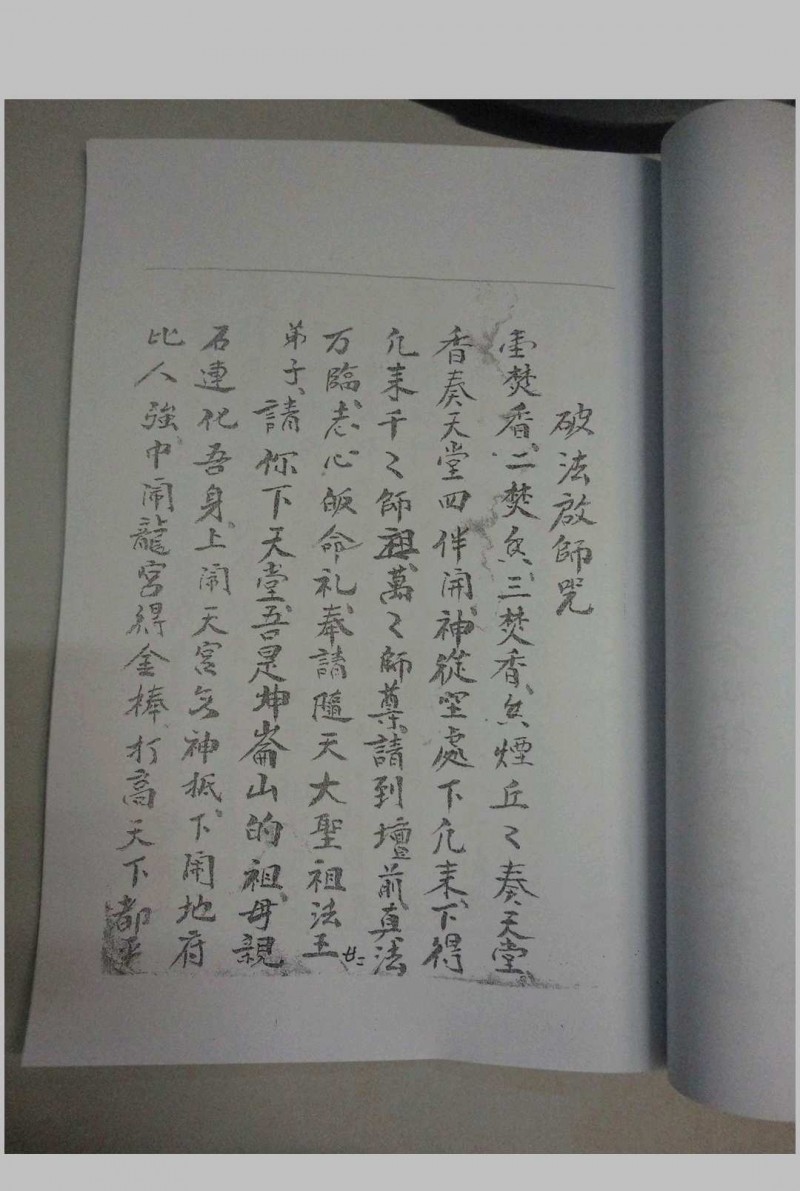 破法啟師咒
焚香、二焚香、三焚香、香煙丘々奏天堂、
香奏天堂四伴開、神從空處下凡来、下得
凡来千々師祖、萬々師尊、請到壇前真法
万临、志心皈命礼、奉請隨天大聖祖法王
弟子、請你下天堂、吾是坤崙山的祖、母親
石連化吾身、上鬧天宮神抵、下鬧地府
比人強、中鬧龍宮得金棒、打高天下都平